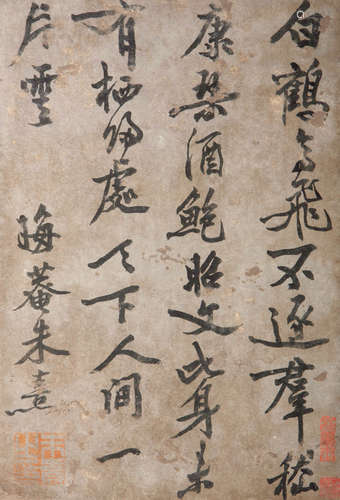 白鶴高飛不逐群嵇
康琴酒鮑昭文此身未
有栖歸處天下人間一
片雲
晦菴朱熹